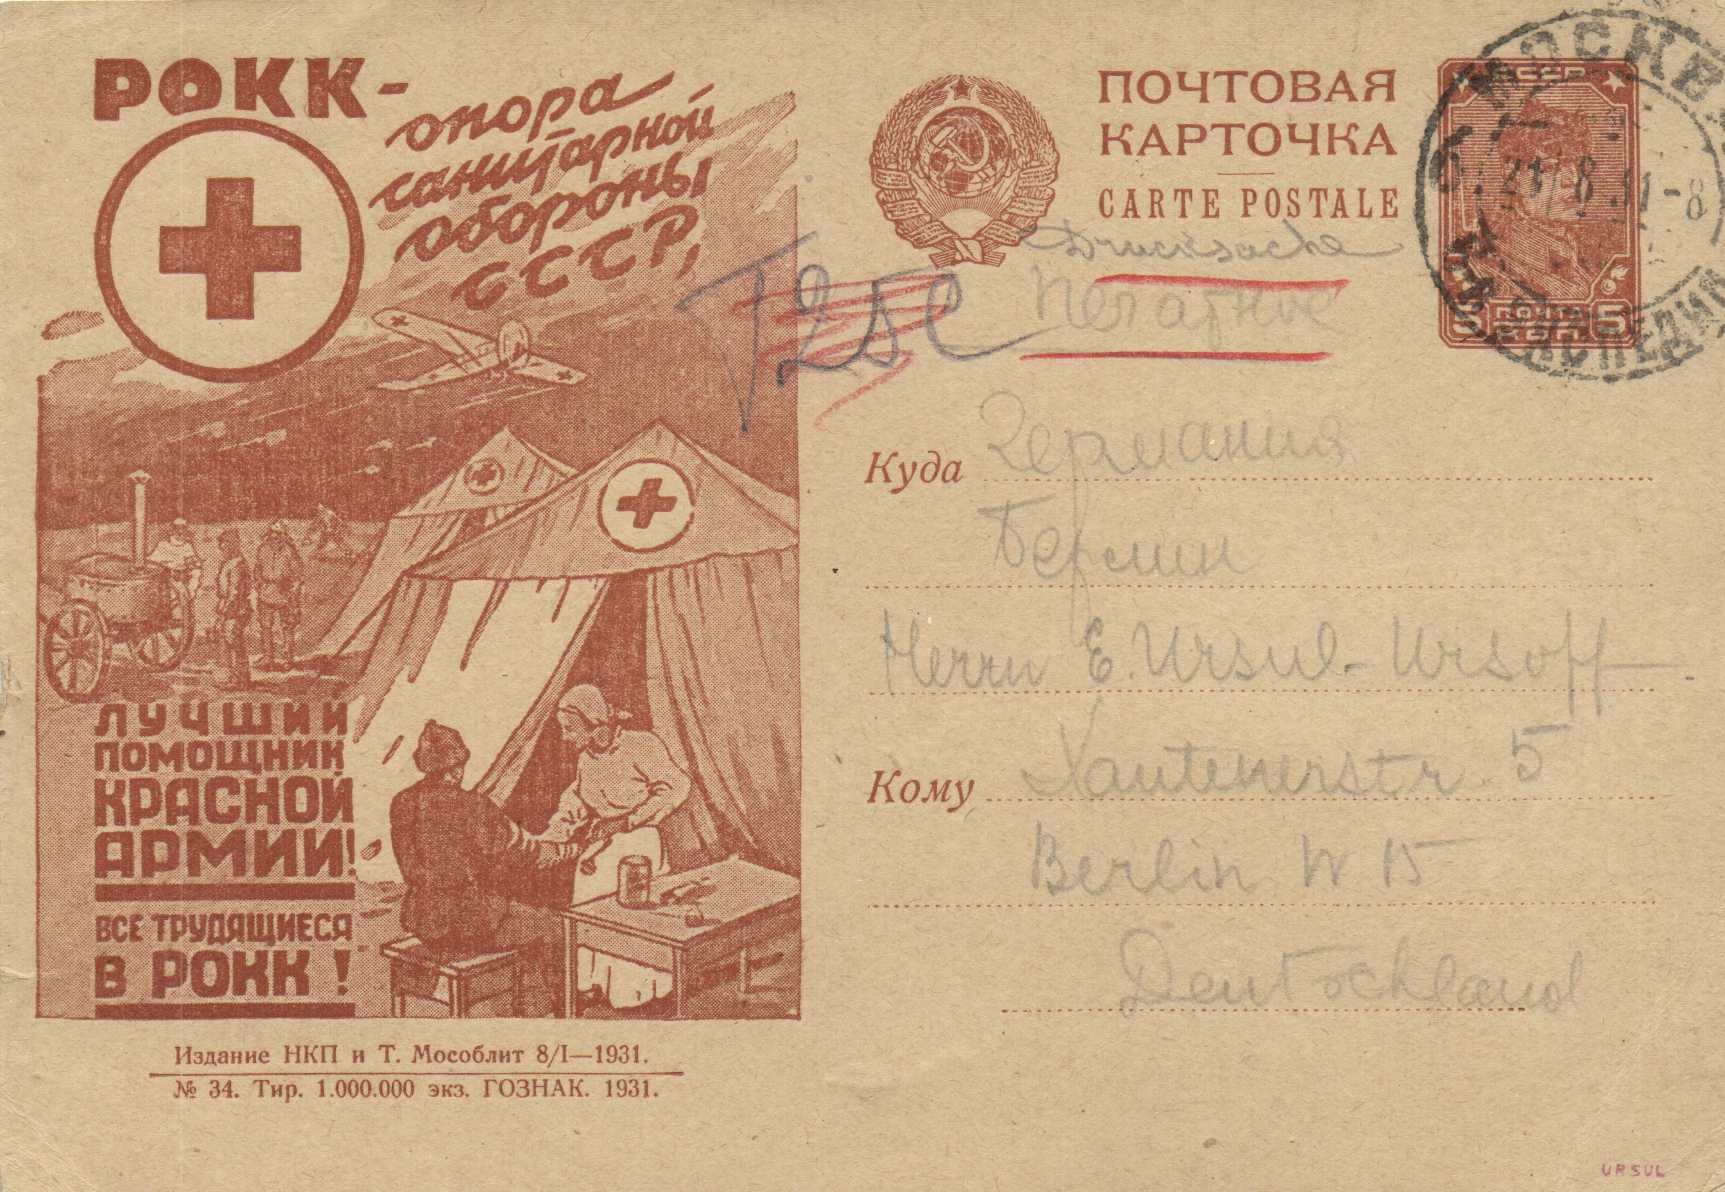 РОКК-
опора
санитарной
обороны
СССР,
ЛУЧШИЙ
ПОМОЩНИК
КРАСНОЙ
АРМИИ!
ВСЕ ТРУДЯЩИЕСЯ
В РОКК!
Издание НКП и Т. Мособлит 8/I—1931.
№ 34. Тир. 1.000.000 экз. ГОЗНАК. 1931.
ПОЧТОВАЯ
КАРТОЧКА
CARTE POSTALE
СССР
ПОЧТА
5 5
МОСКВА
21 8 31-8
ЭКСПЕДИЦ
Drucksache
Печатное
T25c
Куда Германия
Берлин
Herrn E. Ursul-Ursoff
Кому Xantenerstr. 5
Berlin W 15
Deutschland
URSUL